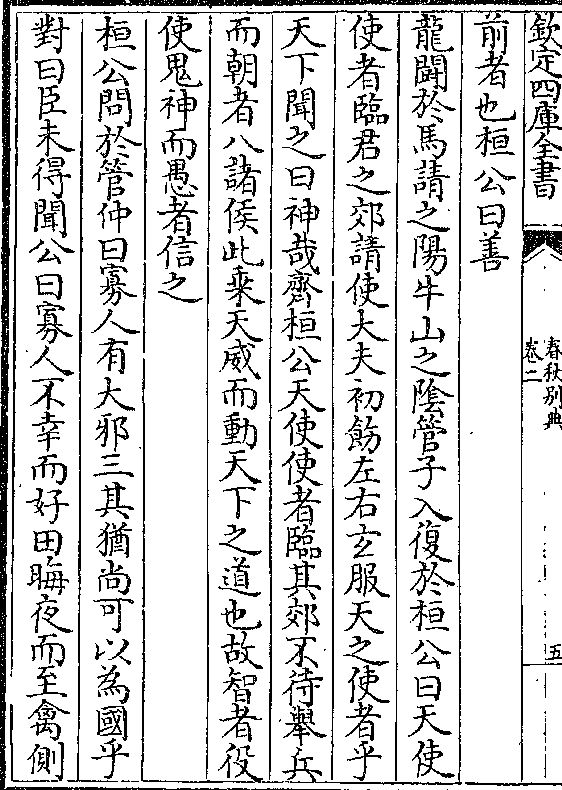 欽定四庫全書
春秋別典
卷二
五
前者也桓公曰善
龍鬪於馬請之陽牛山之陰管子入復於桓公曰天使
使者臨君之郊請使大夫初飭左右玄服天之使者乎
天下聞之曰神哉齊桓公天使使者臨其郊不待舉兵
而朝者八諸侯此乗天威而動天下之道也故智者役
使鬼神而愚者信之
桓公問於管仲曰寡人有大邪三其猶尚可以為國乎
對曰臣未得聞公曰寡人不幸而好田晦夜而至禽側